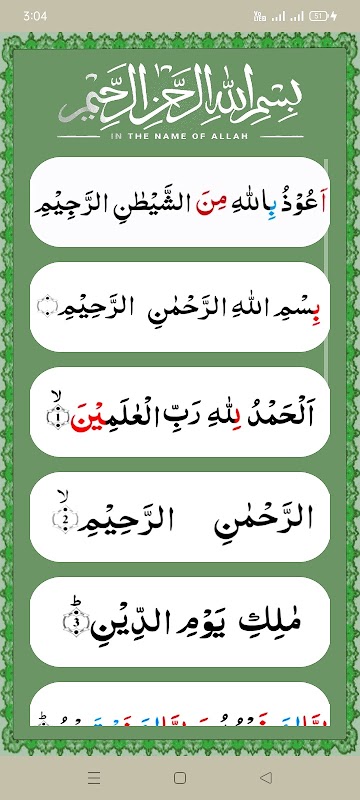 3:04 51
بِسْمِ اللهِ الرَّحْمٰنِ الرَّحِيْمِ
IN THE NAME OF ALLAH
اَعُوْذُ بِاللهِ مِنَ الشَّيْطٰنِ الرَّجِيْمِ
بِسْمِ اللهِ الرَّحْمٰنِ الرَّحِيْمِ
اَلْحَمْدُ لِلّٰهِ رَبِّ الْعٰلَمِيْنَ ۙ 1
الرَّحْمٰنِ الرَّحِيْمِ ۙ 2
مٰلِكِ يَوْمِ الدِّيْنِ ؕ 3